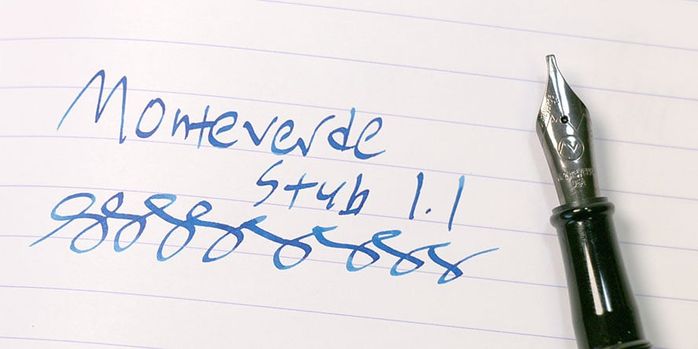 Monteverde
Stub 1.1